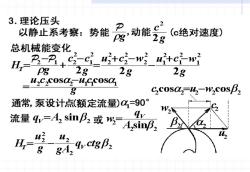 3. 理论压头
以静止系考察：势能 P/ρg ,动能 c²/2g (c绝对速度)
总机械能变化
H_T = (P₂-P₁)/ρg + (c₂²-c₁²)/2g = (u₂²+c₂²-w₂²)/2g - (u₁²+c₁²-w₁²)/2g
= (u₂c₂cosα₂-u₁c₁cosα₁)/g c₂cosα₂=u₂-w₂cosβ₂
通常, 泵设计点(额定流量)α₁=90°
流量 q_V=A₂ sinβ₂ 或 w₂= q_V/(A₂sinβ₂)
H_T= u₂²/g - u₂/(gA₂) q_V ctgβ₂
w₂ c₂ β₂ α₂ u₂